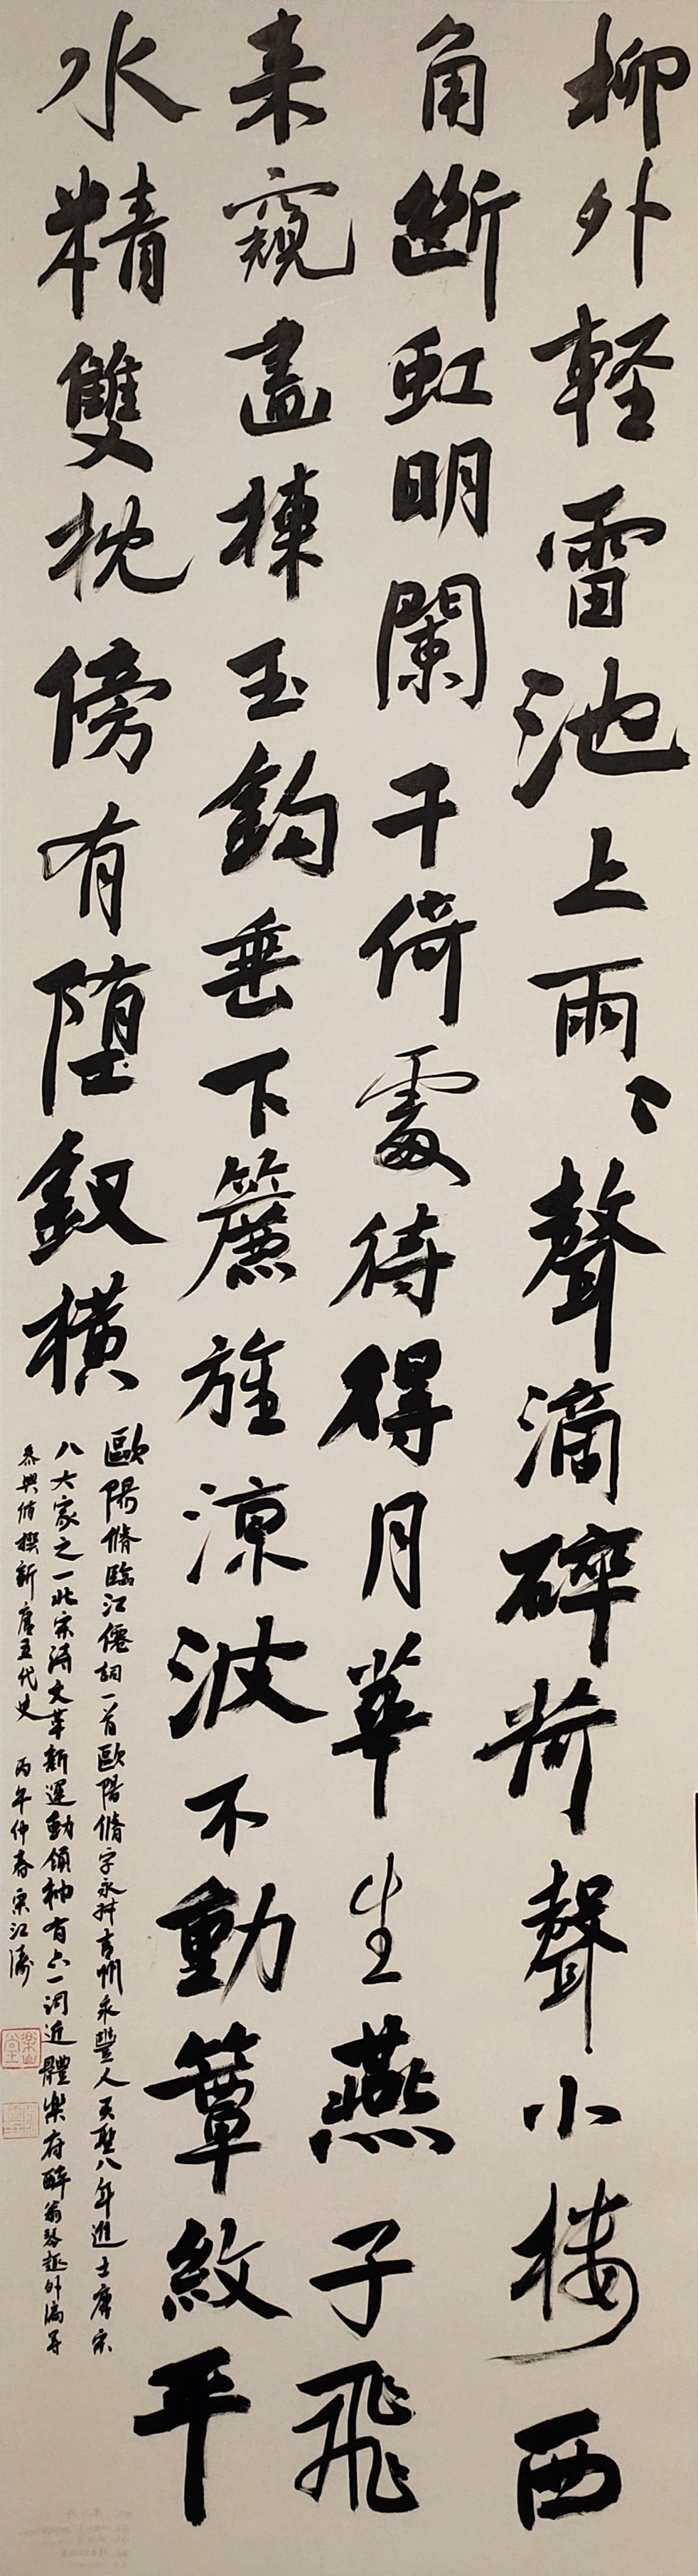 柳外軽雷池上雨〻聲滴碎荷聲小楼西
角斷虹明闌干倚處待得月華生燕子飛
来窺畫棟玉鈎垂下簾旌凉波不動簟紋平
水精雙枕傍有堕釵橫
歐陽脩臨江僊詞一首歐陽脩字永叔吉州永豐人天聖八年進士唐宋
八大家之一北宋诗文革新運動領袖有六一词近體樂府醉翁琴趣外篇等
參與脩撰新唐五代史 丙午仲春宋江濤